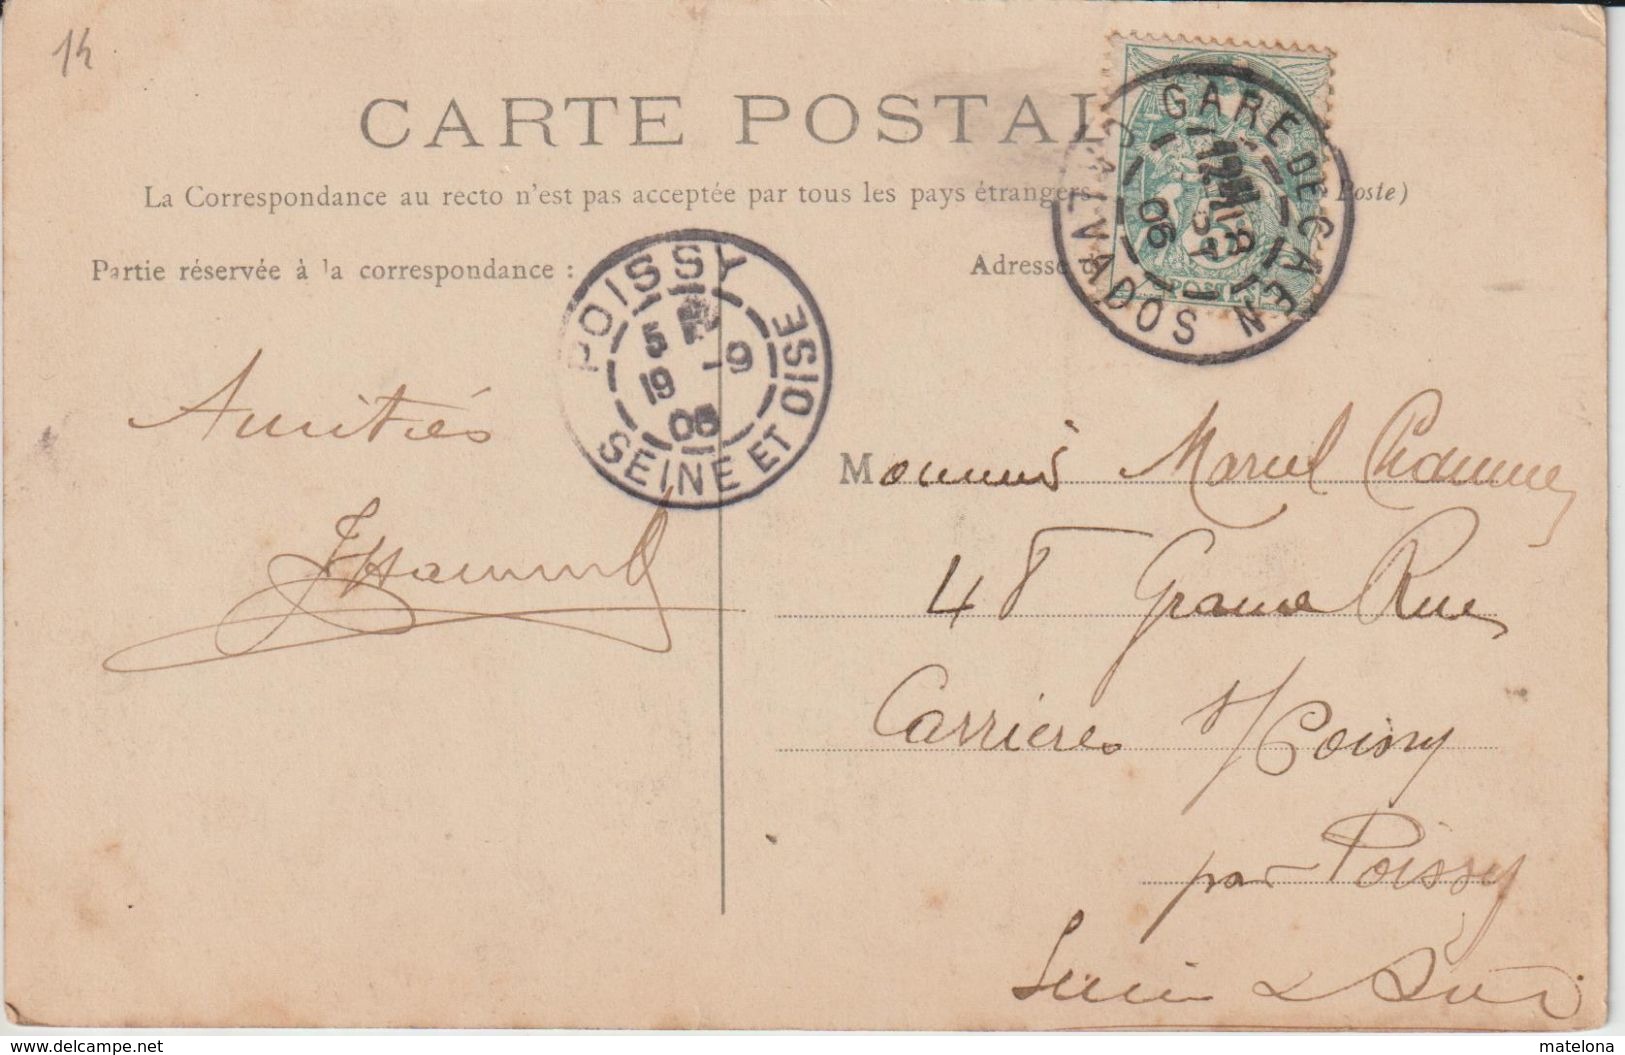 14
CARTE POSTAL
La Correspondance au recto n'est pas acceptée par tous les pays étrangers
Poste)
Partie réservée à la correspondance :
Adresse
GARE DE CAEN
CALVADOS
12
06
POSTES
POISSY
5
19 -9
06
SEINE ET OISE
Amitiés
Monsieur Marcel
48 Grande Rue
Carrières s/Poissy
par Poissy
Seine & Oise
www.delcampe.net
matelona